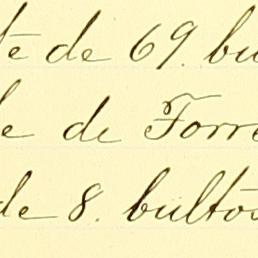 te de 69. bu
e de Torre
de 8. bultos